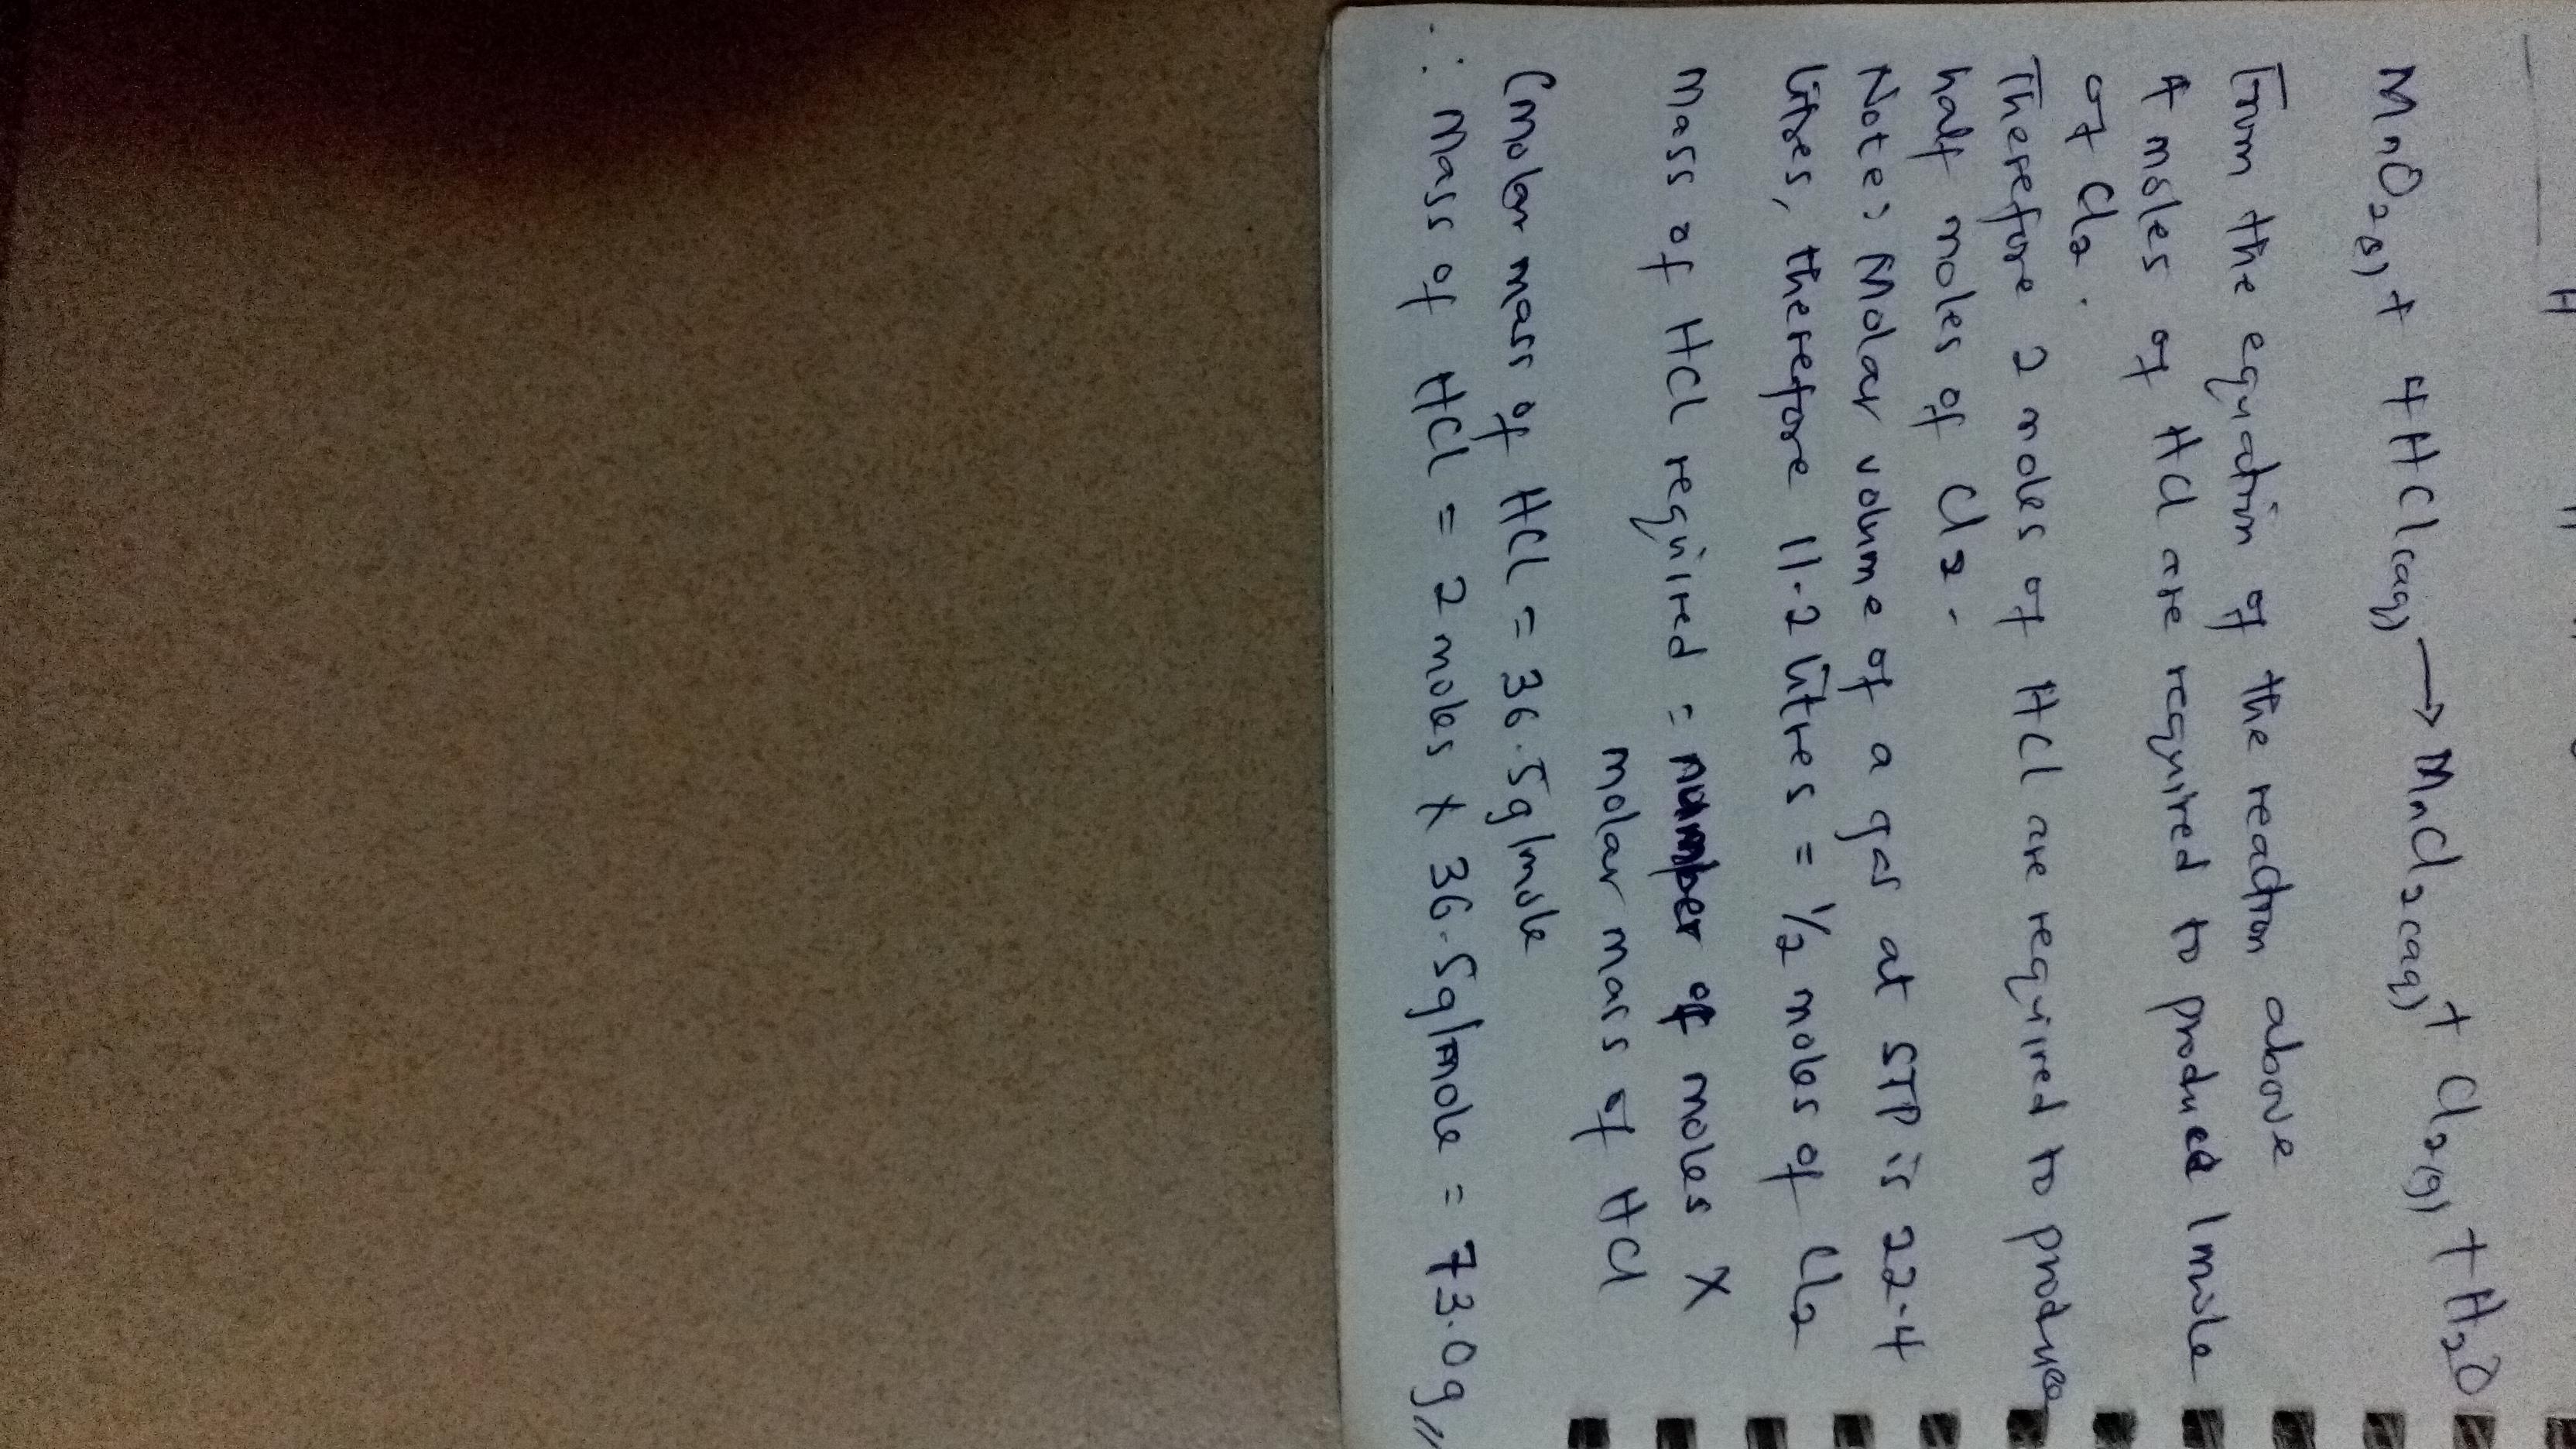 MnO₂(s) + 4HCl(aq) → MnCl₂(aq) + Cl₂(g) + H₂O
From the equation of the reaction above
4 moles of HCl are required to produce 1 mole
of Cl₂.
Therefore 2 moles of HCl are required to produce
half moles of Cl₂.
Note: Molar volume of a gas at STP is 22.4
litres, therefore 11.2 litres = 1/2 moles of Cl₂
Mass of HCl required = number of moles X
molar mass of HCl
(molar mass of HCl = 36.5g/mole
∴ Mass of HCl = 2 moles x 36.5g/mole = 73.0g//